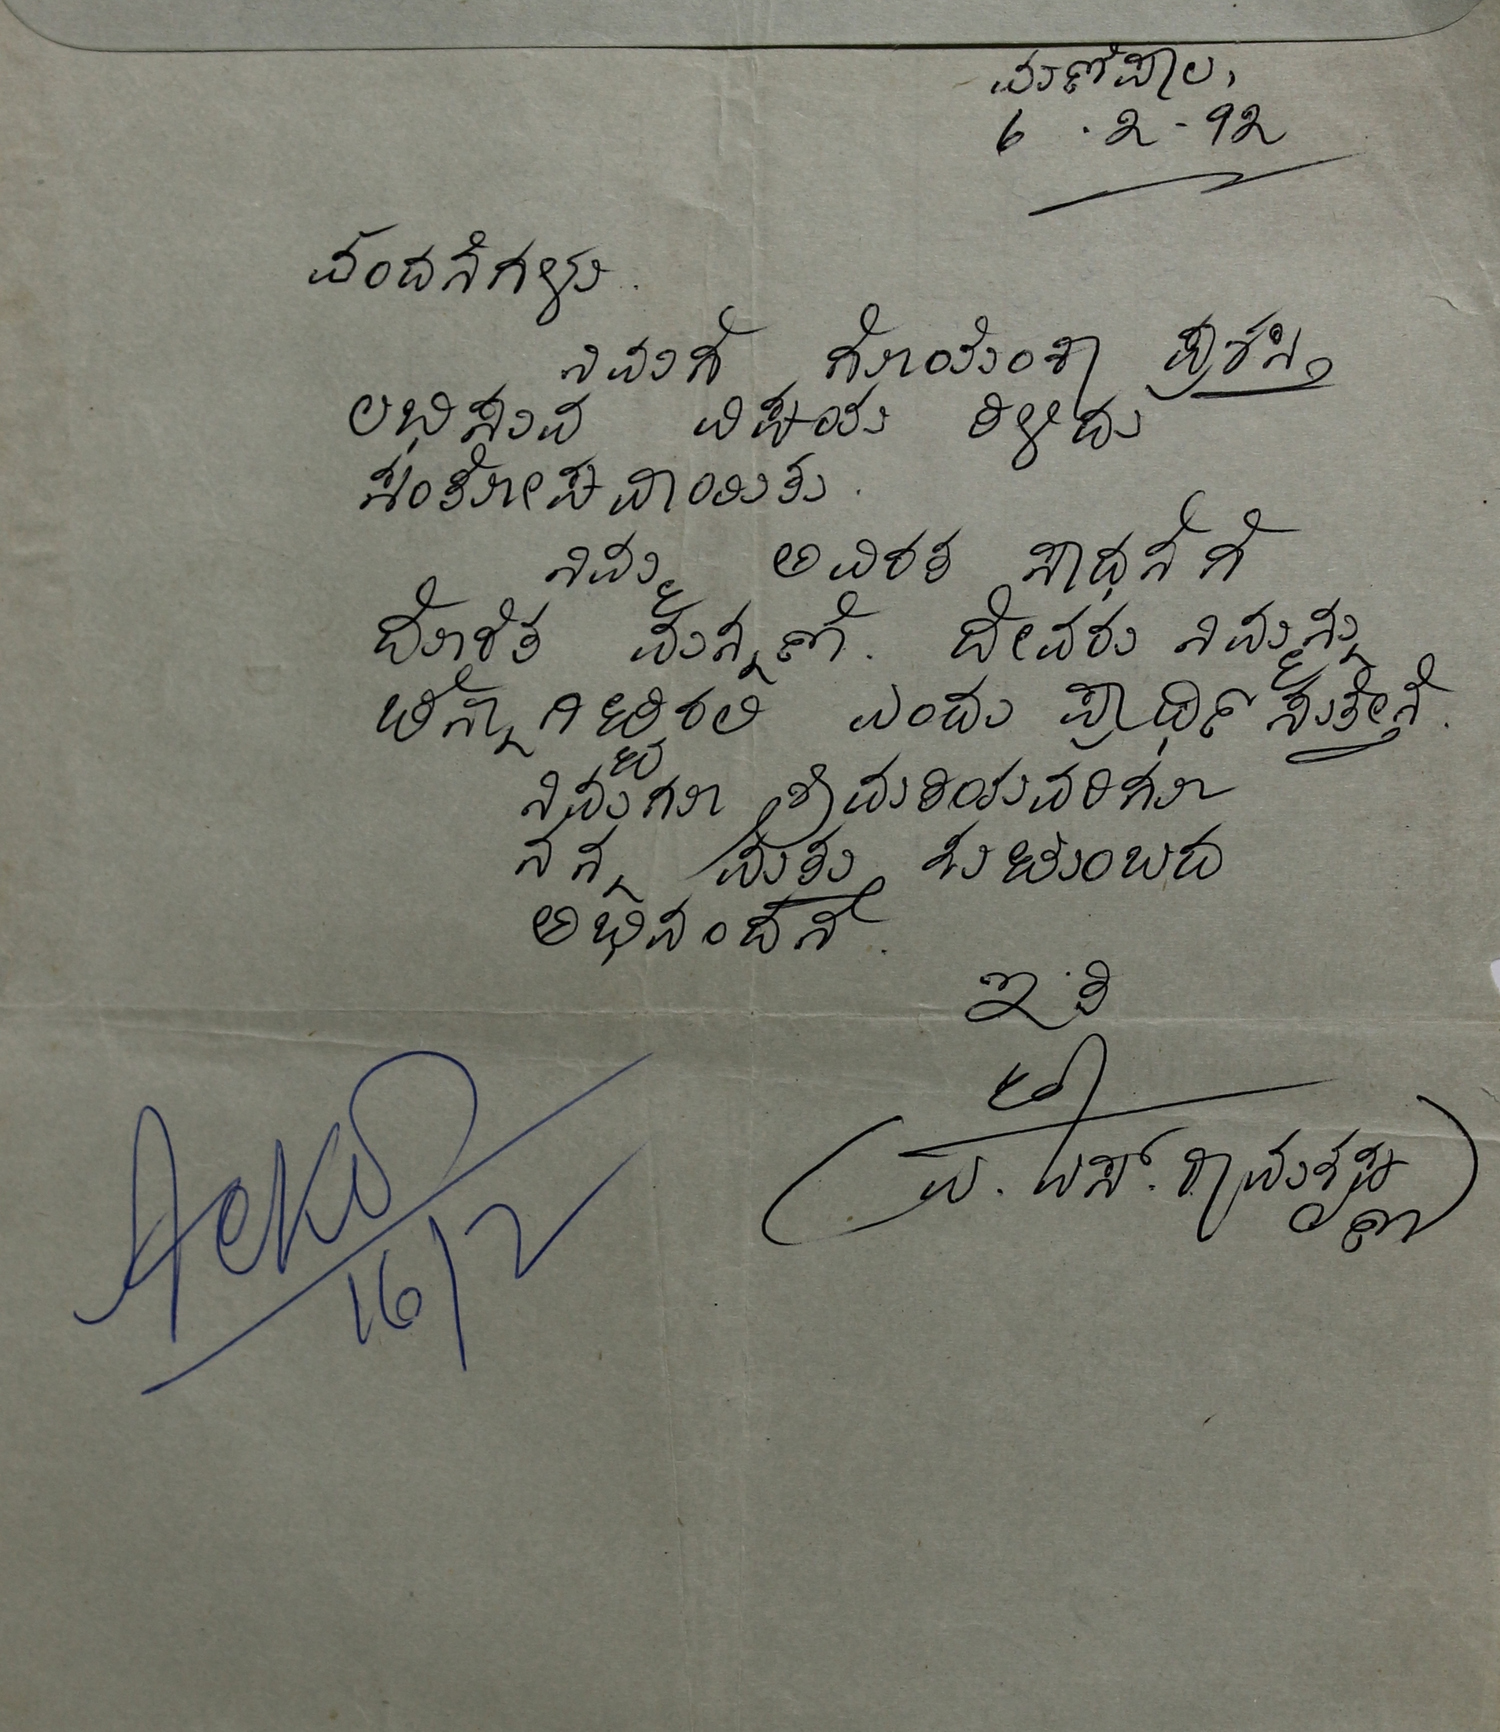 ಮಣಿಪಾಲ,
6 . 2 - 92
ವಂದನೆಗಳು.
ನಿಮಗೆ ಗೊಯೆಂಕಾ ಪ್ರಶಸ್ತಿ
ಲಭಿಸುವ ವಿಷಯ ತಿಳಿದು
ಸಂತೋಷವಾಯಿತು.
ನಿಮ್ಮ ಅವಿರತ ಸಾಧನೆಗೆ
ದೊರೆತ ಮನ್ನಣೆ. ದೇವರು ನಿಮ್ಮನ್ನು
ಚೆನ್ನಾಗಿಟ್ಟಿರಲಿ ಎಂದು ಪ್ರಾರ್ಥಿಸುತ್ತೇನೆ.
ನಿಮಗೂ ಶ್ರೀಮತಿಯವರಿಗೂ
ನನ್ನ ಮತ್ತು ಕುಟುಂಬದ
ಅಭಿನಂದನೆ.
ಇತಿ
( ಪಿ. ಎಸ್. ರಾಮಕೃಷ್ಣ )
Ackd
16/2